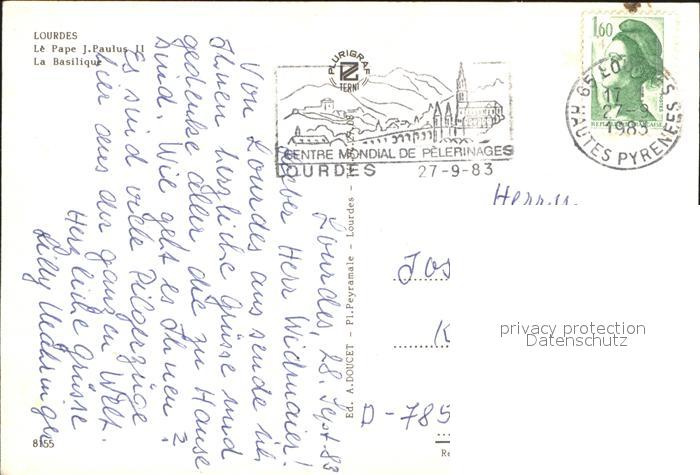 LOURDES
Le Pape J.Paulus II
La Basilique
PLURIGRAF
TERNI
CENTRE MONDIAL DE PÈLERINAGES
LOURDES 27-9-83
1,60
65 LOURDES
17
27-9
1983
HAUTES PYRENEES
Lourdes, 28. Sept 83
Lieber Herr Widmaier!
Von Lourdes aus sende ich
Ihnen herzliche Grüsse und
gedenke aller, die zu Hause
sind. Wie geht es Ihnen?
Es sind viele Pilgerzüge
hier aus der ganzen Welt.
Herzliche Grüsse
Lilly
Ed. A.DOUCET - Pl.Peyramale - Lourdes
Herrn
Jos
K
D-785
privacy protection
Datenschutz
8155